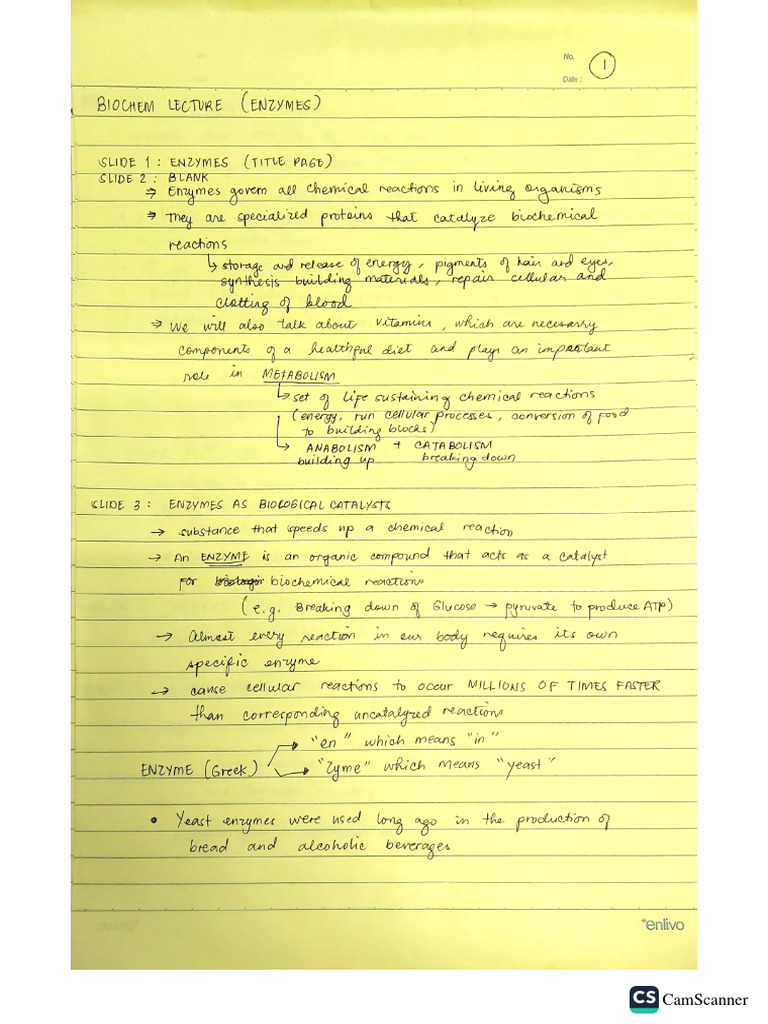 No. 1
Date :
BIOCHEM LECTURE (ENZYMES)
SLIDE 1 : ENZYMES (TITLE PAGE)
SLIDE 2 : BLANK
⇒ Enzymes govern all chemical reactions in living organisms
⇒ They are specialized proteins that catalyze biochemical
reactions
↳ storage and release of energy, pigments of hair and eyes,
synthesis building materials, repair cellular and
clotting of blood
⇒ We will also talk about vitamins, which are necessary
components of a healthful diet and plays an important
role in METABOLISM
↳ set of life sustaining chemical reactions
(energy, run cellular processes, conversion of food
to building blocks)
↳ ANABOLISM + CATABOLISM
building up breaking down
SLIDE 3 : ENZYMES AS BIOLOGICAL CATALYSTS
→ substance that speeds up a chemical reaction
→ An ENZYME is an organic compound that acts as a catalyst
for biochemical reactions
(e.g. Breaking down of Glucose → pyruvate to produce ATP)
→ Almost every reaction in our body requires its own
specific enzyme
→ cause cellular reactions to occur MILLIONS OF TIMES FASTER
than corresponding uncatalyzed reactions
→ "en" which means "in"
ENZYME (Greek) → "Zyme" which means "yeast"
• Yeast enzymes were used long ago in the production of
bread and alcoholic beverages
enlivo
CS CamScanner